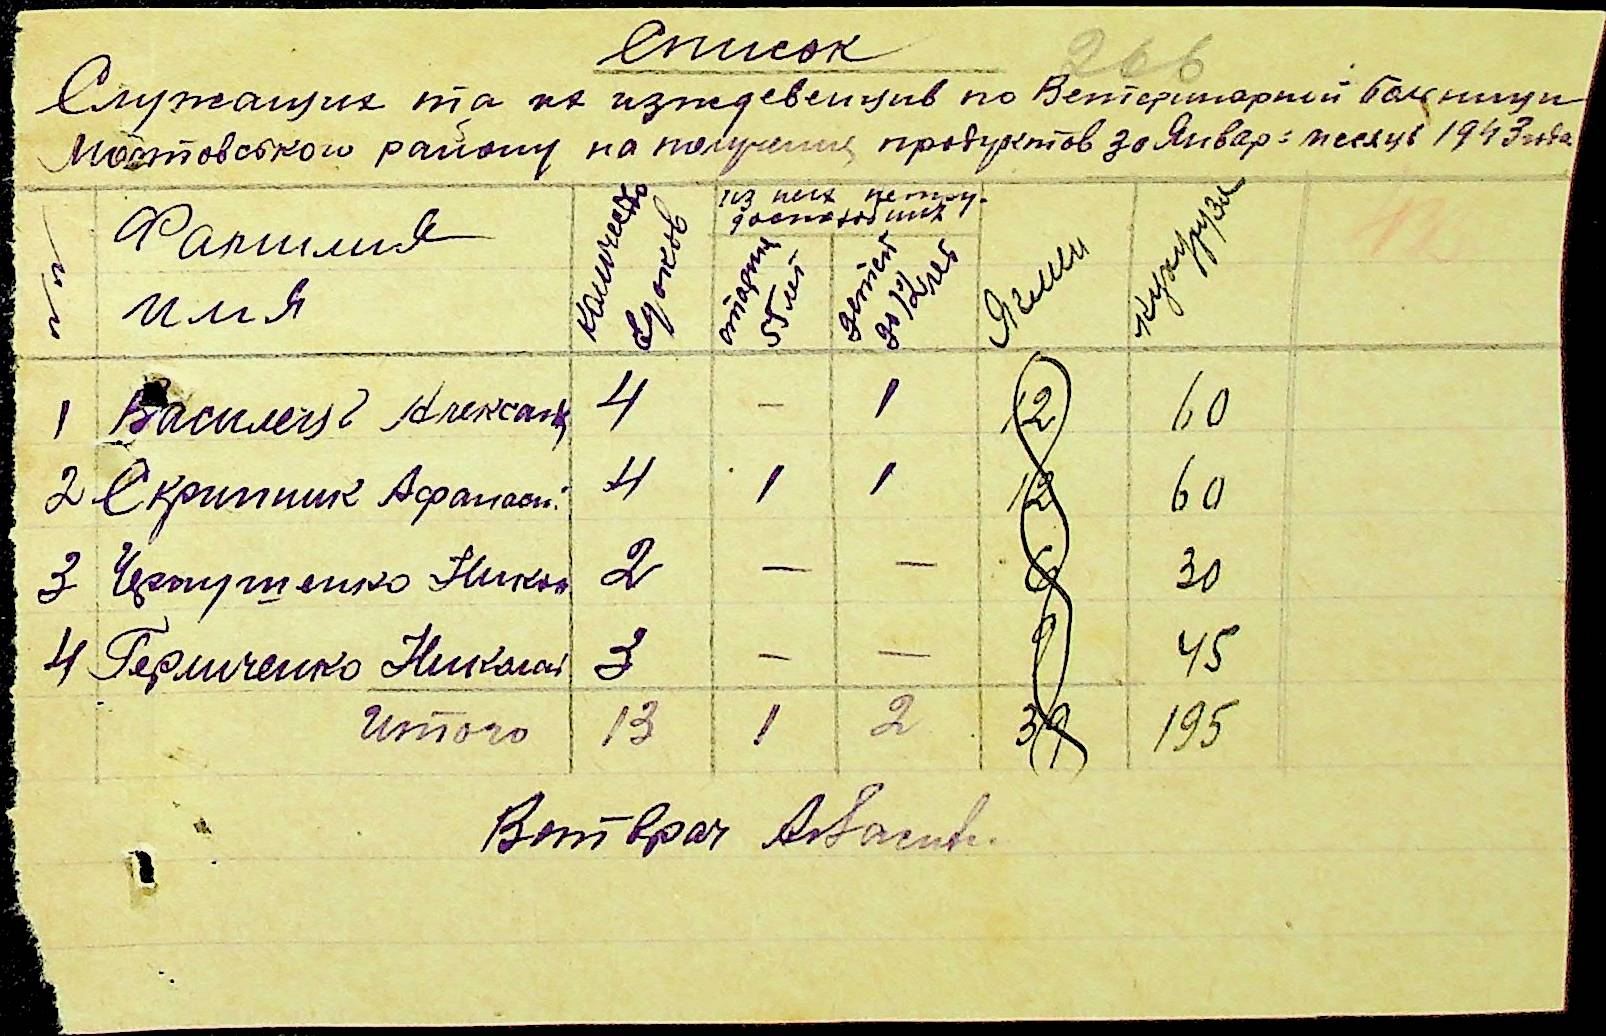 Список
266
Служащих та их изждевенцив по Ветеринарной Больници
Мостовського району на получения продуктов за Январ = месяць 1943 года
№№
Фамилия
имя
количество
едоков
из них нетру-
доспособних
старше
55 лет
детей
до 12 лет
Ячмен
кукуруза
12
1 Василець Александ 4 — 1 12 60
2 Скрипник Афанасий 4 1 1 12 60
3 Чернушенко Никол 2 — — 6 30
4 Герличенко Николай 3 — — 9 45
Итого 13 1 2 39 195
Ветврач АВасил.